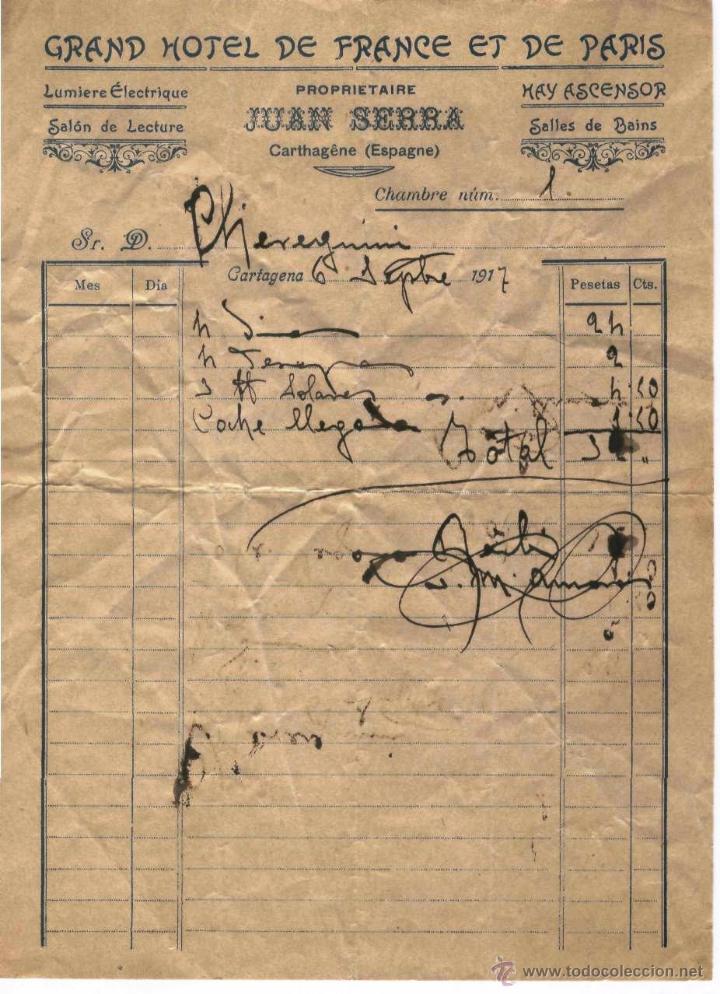 GRAND HOTEL DE FRANCE ET DE PARIS
Lumiere Électrique
Salón de Lecture
PROPRIETAIRE
JUAN SERRA
Carthagêne (Espagne)
HAY ASCENSOR
Salles de Bains
Chambre núm. 1.
Sr. D. Chereguini
Cartagena 6 Septbre 1917
Mes Dia Pesetas Cts.
4 Dias 24
4 2
3 Solares 4 50
Coche llegada 1 50
Total 3 „
Recibi
www.todocoleccion.net